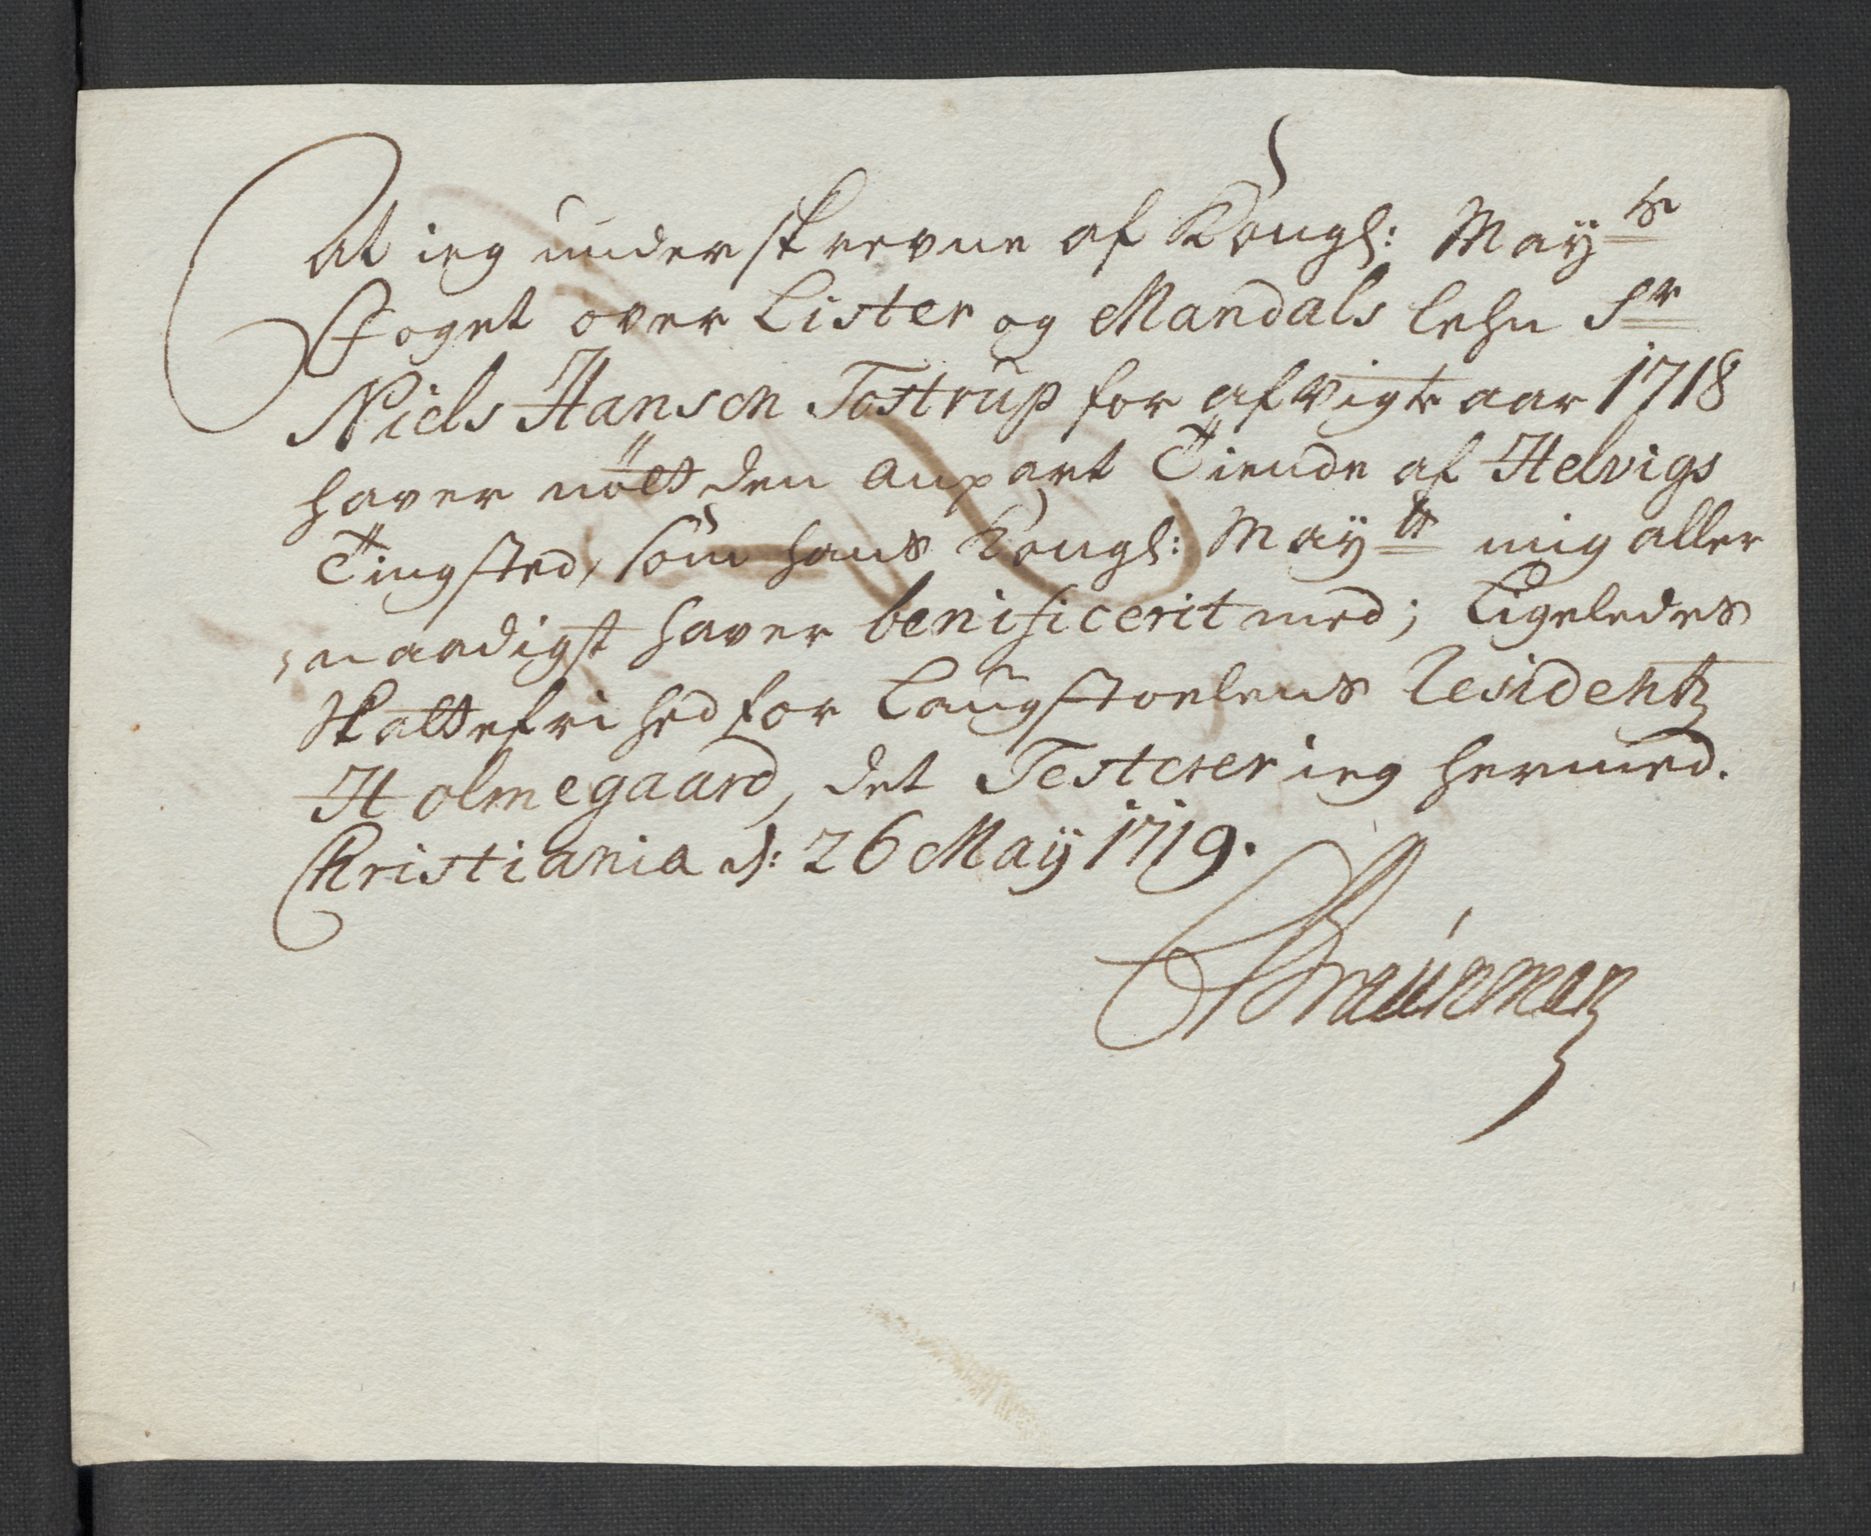 At ieg underskrevne af Kongl: May<sup>ts</sup>
Foget over Lister og Mandals lehn S<sup>r</sup>
Niels Hansen Tostrup for afvigte aar 1718
haver nött den anpart Tiende af Helvigs
Tingsted, som hans Kongl: May<sup>tt</sup> mig aller
naadigst haver benificerit med; Ligeledes
Skattefrihed for Laugstoelens Residentz
Holmegaard, det Testerer ieg hermed.
Christiania d: 26 May 1719.